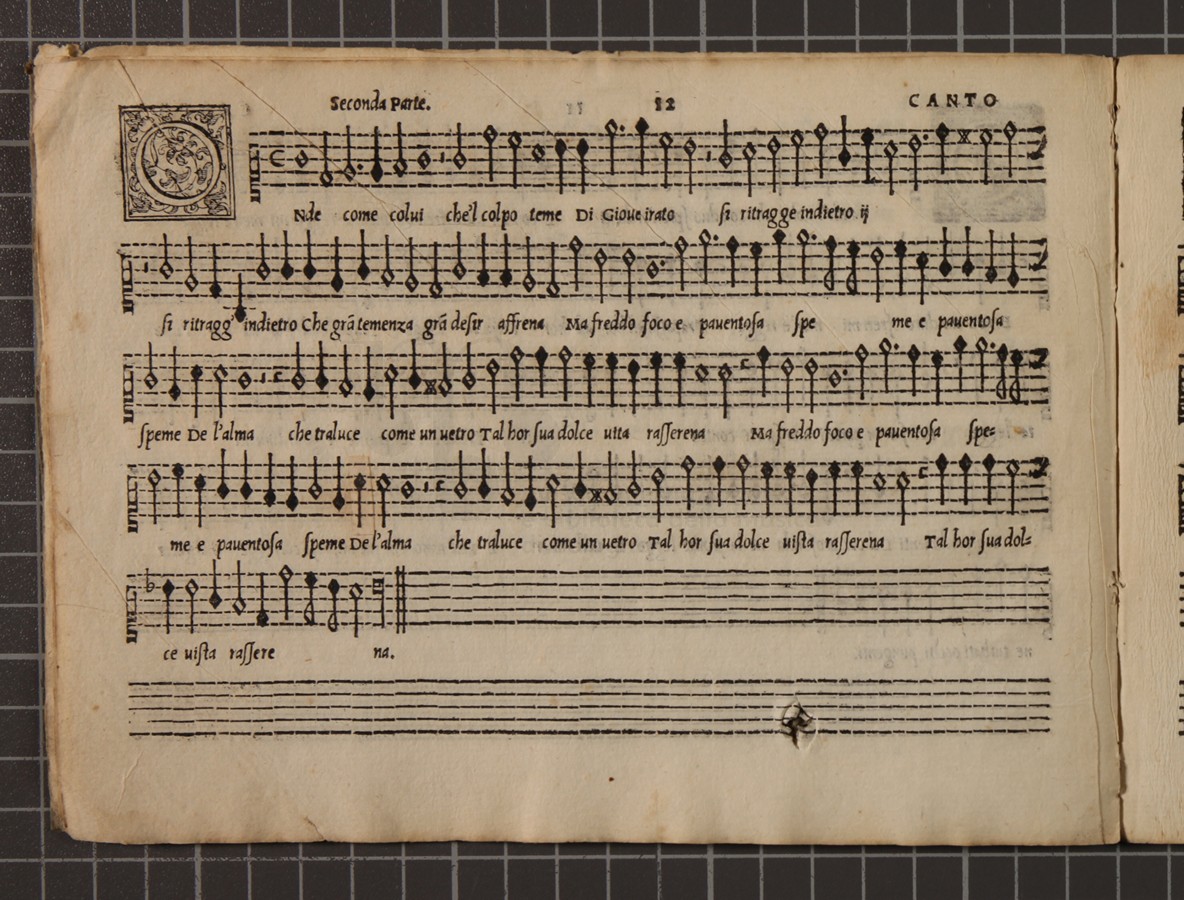 Seconda Parte. 12 CANTO
O Nde come colui che'l colpo teme Di Gioue irato si ritragge indietro ij
si ritragg' indietro Che grã temenza grã desir affrena Ma freddo foco e pauentosa spe me e pauentosa
speme De l'alma che traluce come un uetro Tal hor sua dolce uita rasserena Ma freddo foco e pauentosa spe=
me e pauentosa speme De l'alma che traluce come un uetro Tal hor sua dolce uista rasserena Tal hor sua dol=
ce uista rassere na.